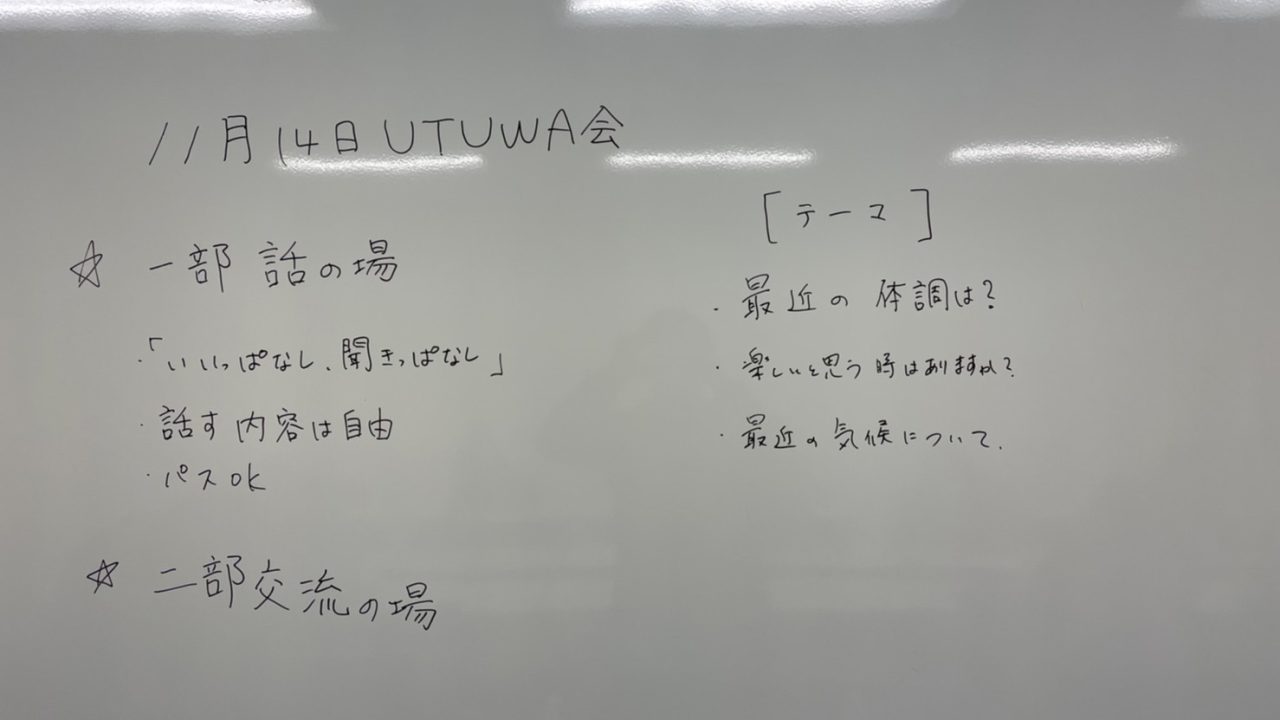 11月14日UTUWA会
☆ 一部 話の場
・「いいっぱなし、聞きっぱなし」
・話す内容は自由
・パスOK
☆ 二部交流の場
[テーマ]
・最近の体調は?
・楽しいと思う時はありますか?
・最近の気候について.